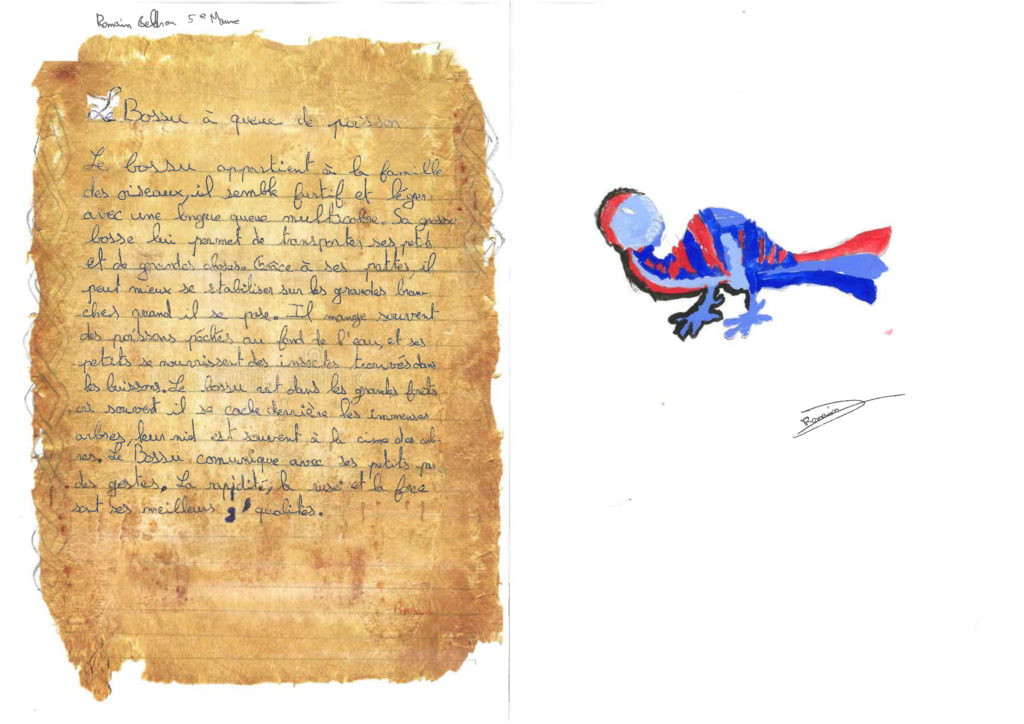 Romain 5e
Le Bossu à queue de poisson
Le bossu appartient à la famille
des oiseaux, il semble furtif et léger
avec une longue queue multicolore. Sa grosse
bosse lui permet de transporter ses petits
et de grandes choses. Grâce à ses pattes, il
peut mieux se stabiliser sur les grandes bran-
ches quand il se pose. Il mange souvent
des poissons péchés au fond de l'eau, et ses
petits se nourrissent des insectes trouvés dans
les buissons. Le bossu vit dans les grandes forêts
où souvent il se cache derrière les immenses
arbres, leur nid est souvent à la cime des ar-
bres. Le Bossu comunique avec ses petits par
des gestes. La rapidité, la ruse et la force
sont ses meilleurs qualités.
Romain